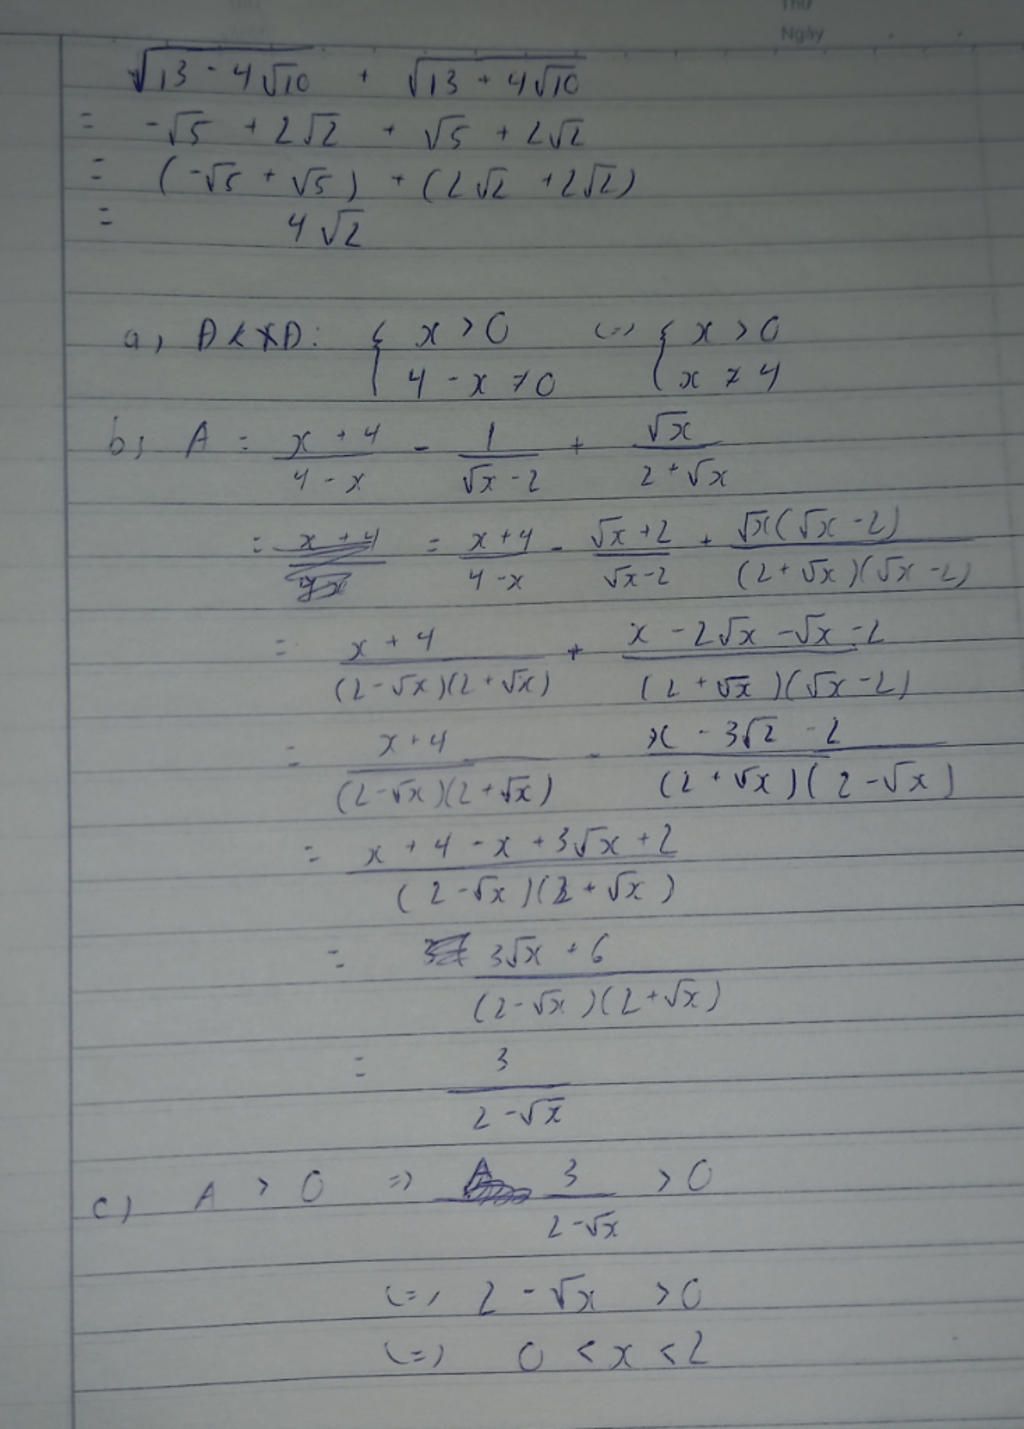 Thứ
Ngày
√(13 - 4√10) + √(13 + 4√10)
= -√5 + 2√2 + √5 + 2√2
= (-√5 + √5) + (2√2 + 2√2)
= 4√2
a, ĐKXĐ: { x > 0 (=) { x > 0
4 - x ≠ 0 x ≠ 4
b, A = (x + 4)/(4 - x) - 1/(√x - 2) + √x/(2 + √x)
= = (x + 4)/(4 - x) - (√x + 2)/(√x - 2) + √x(√x - 2)/((2 + √x)(√x - 2))
= (x + 4)/((2 - √x)(2 + √x)) + (x - 2√x - √x - 2)/((2 + √x)(√x - 2))
= (x + 4)/((2 - √x)(2 + √x)) - (x - 3√2 - 2)/((2 + √x)(2 - √x))
= (x + 4 - x + 3√x + 2)/((2 - √x)(2 + √x))
= (3√x + 6)/((2 - √x)(2 + √x))
= 3/(2 - √x)
c, A > 0 => 3/(2 - √x) > 0
(=) 2 - √x > 0
(=) 0 < x < 2